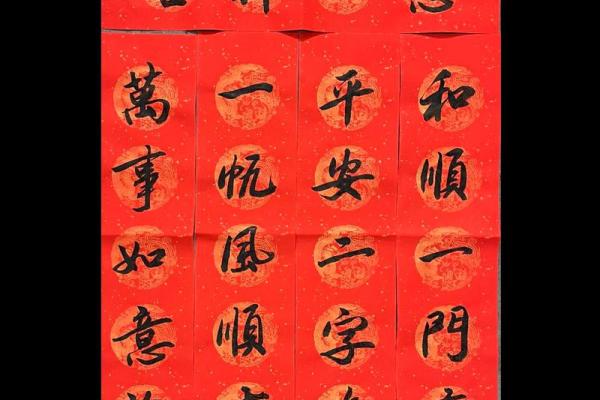 和順一門
平安二字
一帆風順
萬事如意